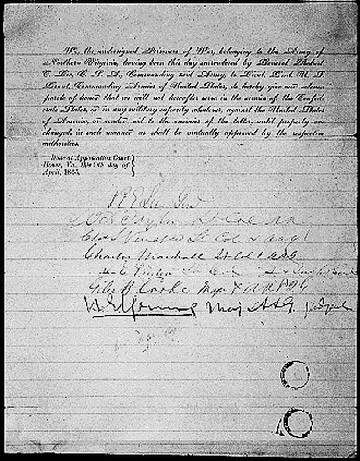 We, the undersigned Prisoners of War, belonging to the Army of
Northern Virginia, having been this day surrendered by General Robert
E. Lee, C. S. A., Commanding said Army, to Lieut. Genl. U. S.
Grant, Commanding Armies of United States, do hereby give our solemn
parole of honor that we will not hereafter serve in the armies of the Confed-
erate States, or in any military capacity whatever, against the United States
of America, or render aid to the enemies of the latter, until properly ex-
changed, in such manner as shall be mutually approved by the respective
authorities.
Done at Appomattox Court
House, Va., this 9th day of
April, 1865.
R E Lee Genl
W H Taylor Lt Col
Chas S Venable Lt Col & A
Charles Marshall Lt Col & A
H E Peyton Lt Col &
Giles B Cooke Maj &
H E Young Maj A A G